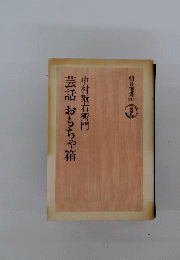 朝日選書
中村翫右衛門
芸話 おもちゃ箱